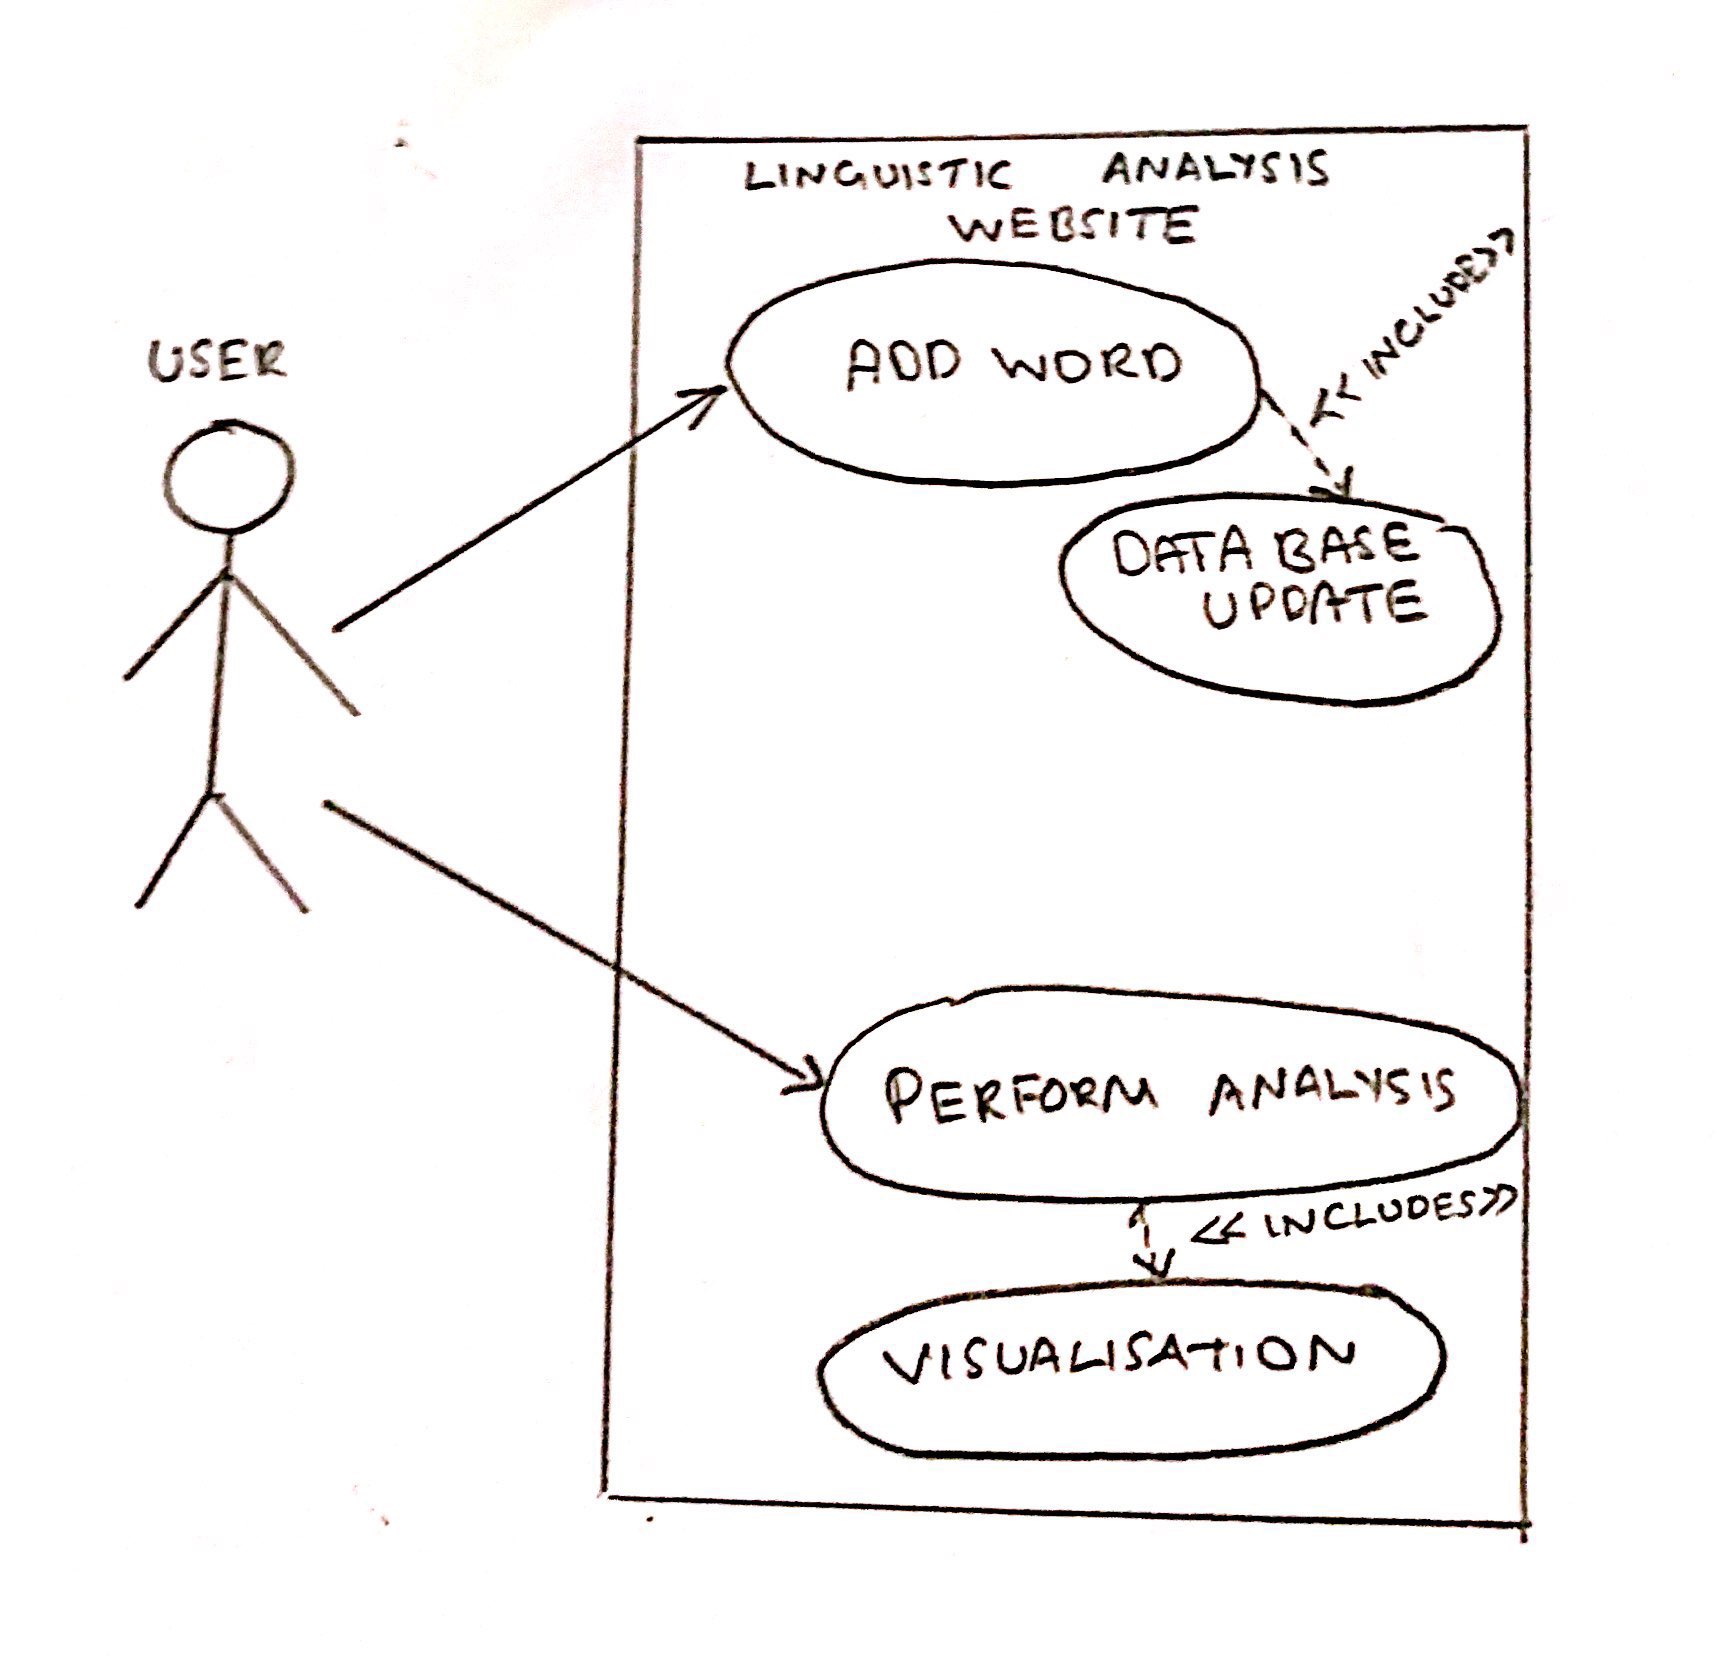 LINGUISTIC ANALYSIS
WEBSITE
USER
ADD WORD
<< INCLUDE>>
DATA BASE
UPDATE
PERFORM ANALYSIS
<< INCLUDES>>
VISUALISATION